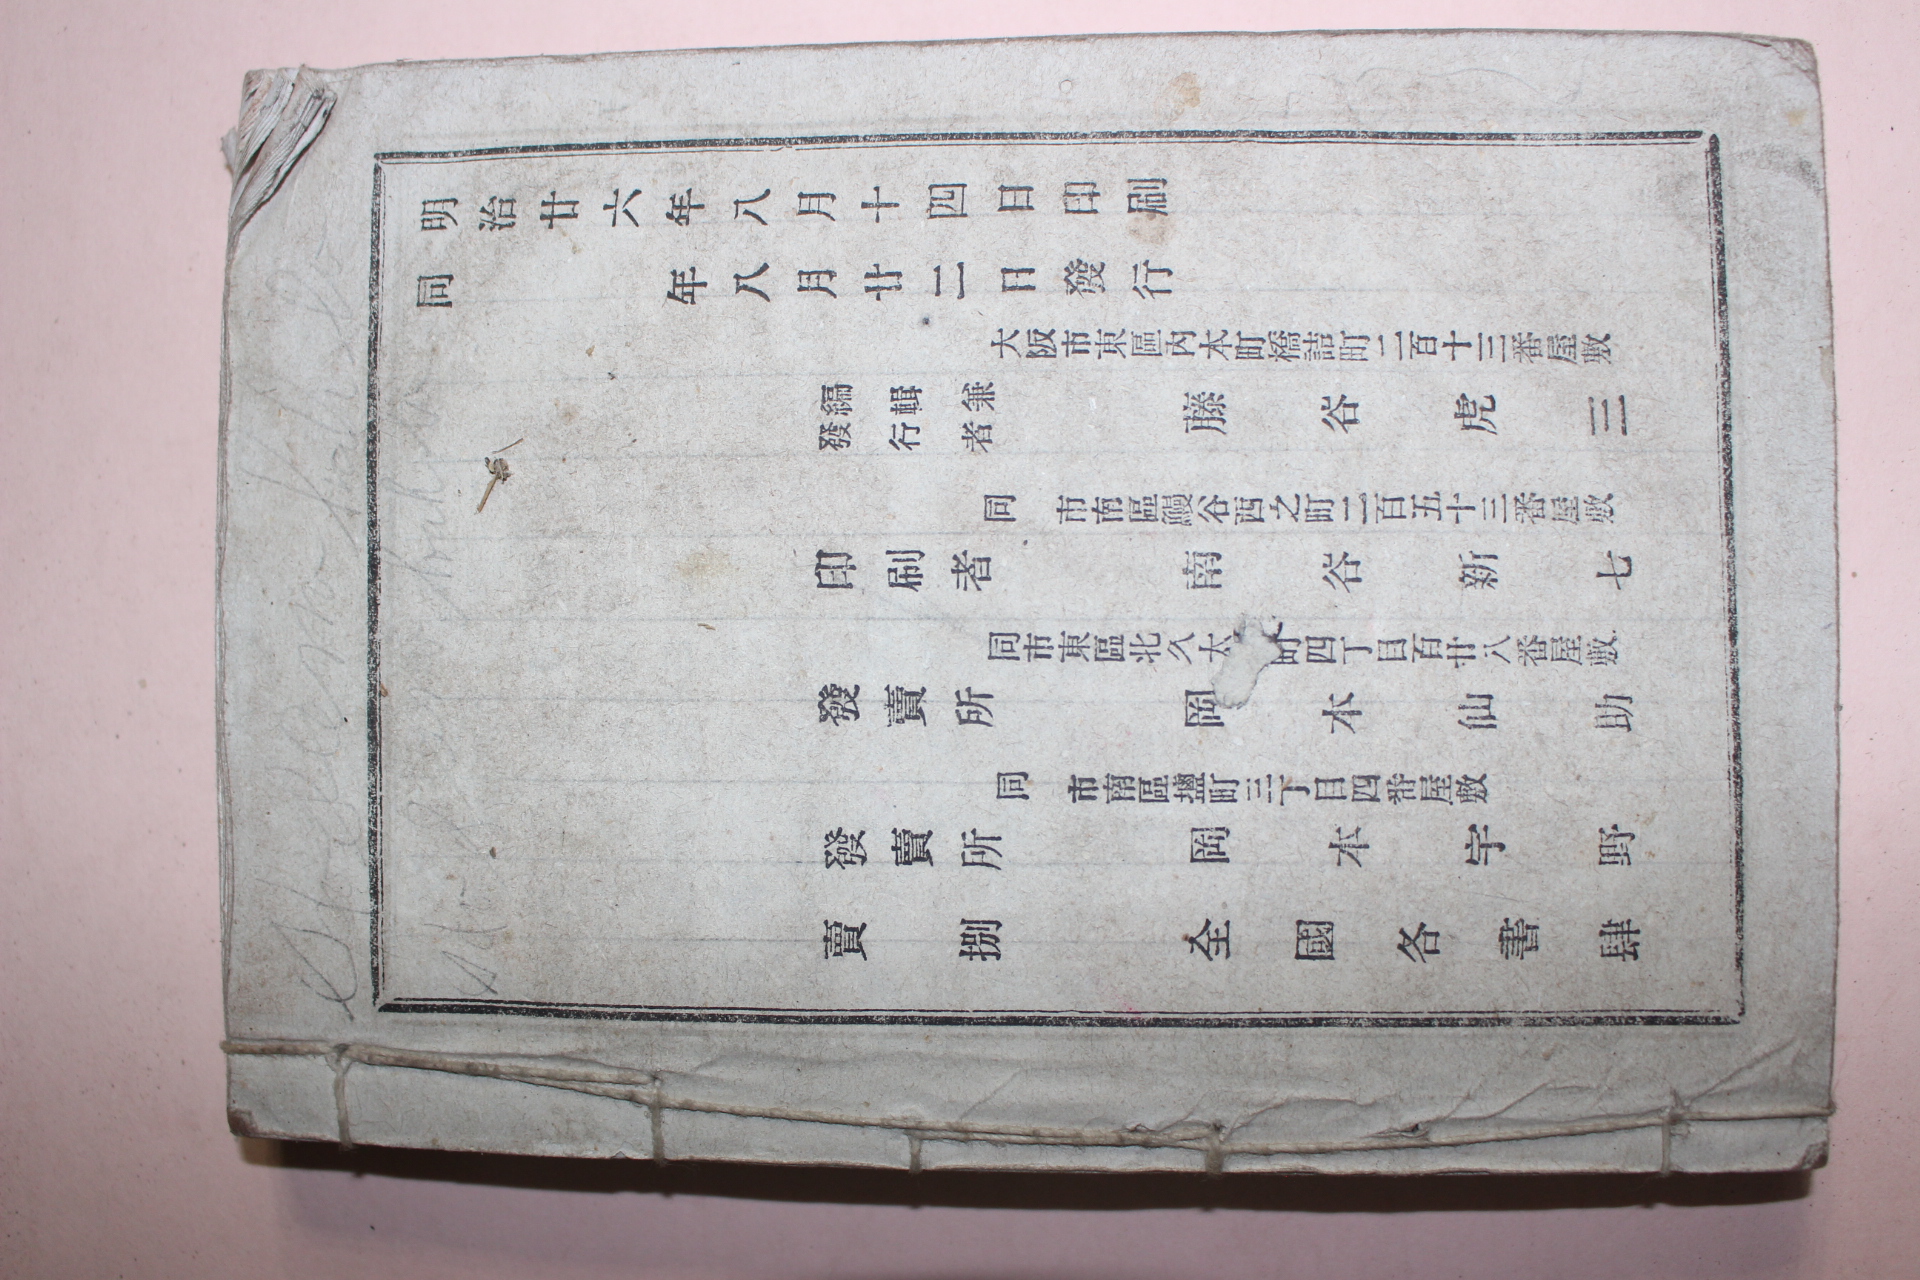 明治廿六年八月十四日印刷
同　　年八月廿二日發行
大阪市東區內本町橋詰町二百十三番屋敷
編輯兼
發行者　藤谷虎三
同市南區鰻谷西之町二百五十三番屋敷
印刷者　南谷新七
同市東區北久太町四丁目百廿八番屋敷
發賣所　岡本仙助
同市南區鹽町三丁目四番屋敷
發賣所　岡本宇野
賣捌　全國各書肆